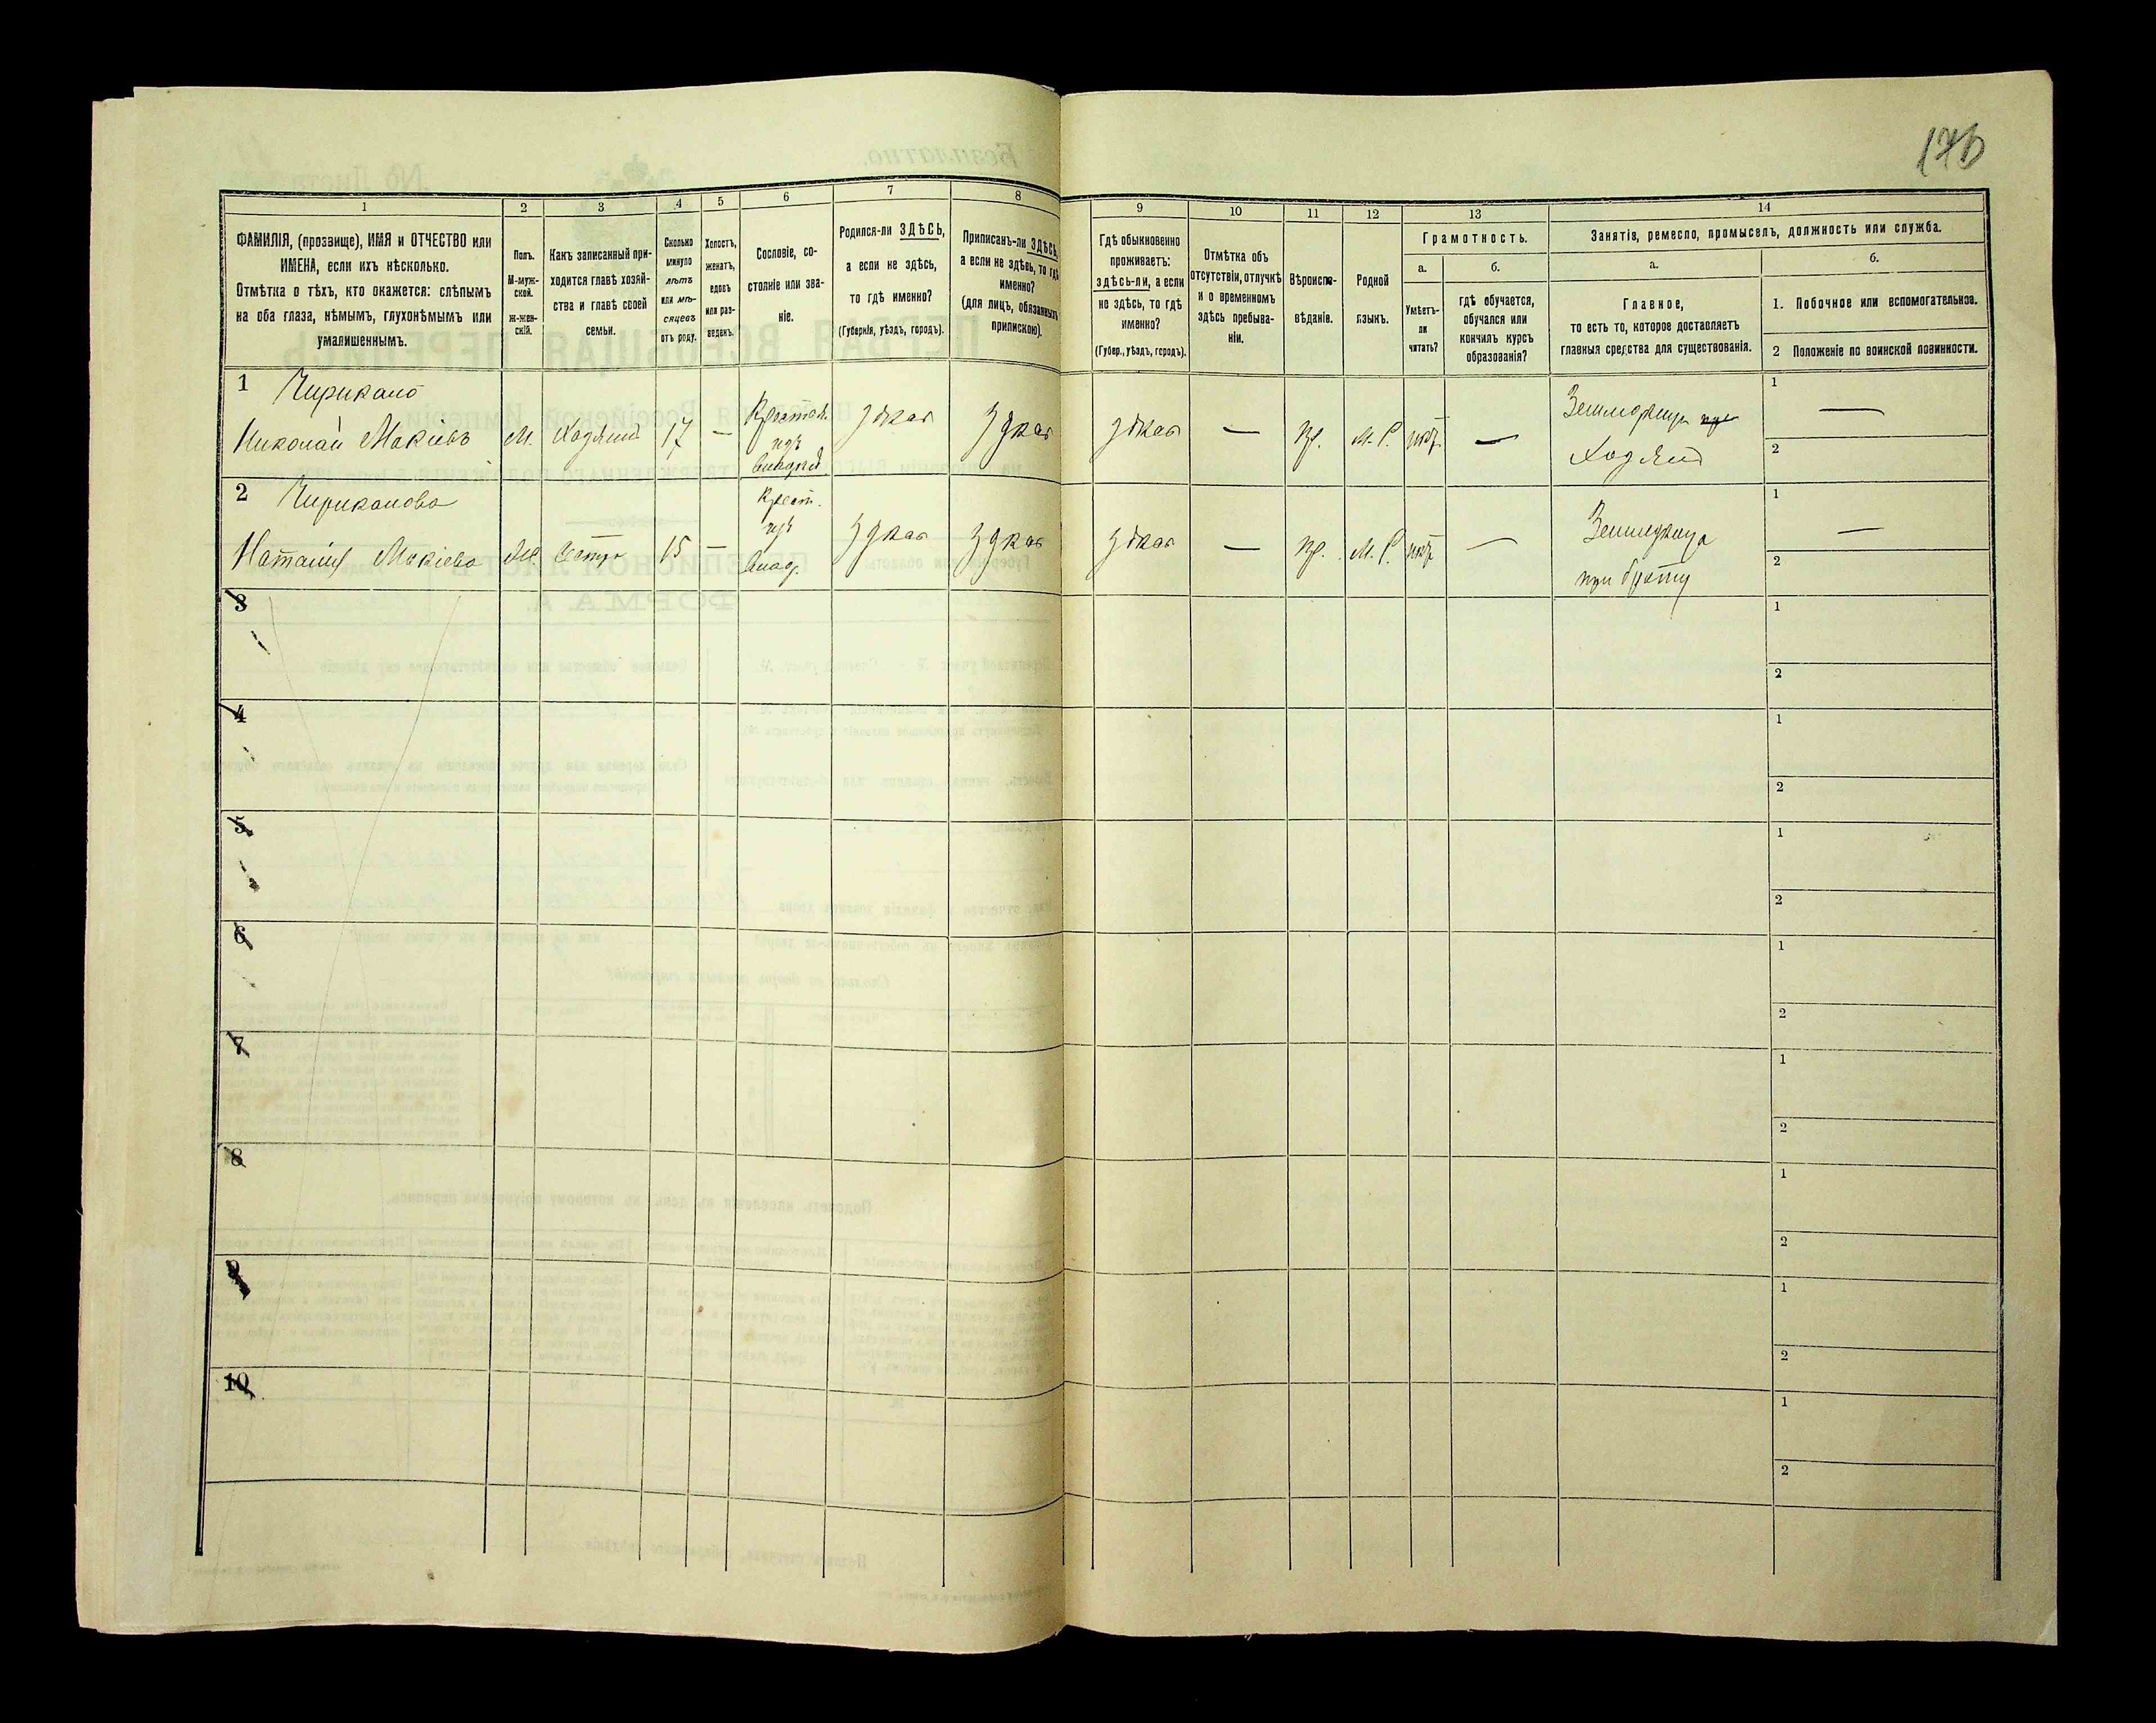 176
1
2
3
4
5
6
7
8
ФАМИЛІЯ, (прозвище), ИМЯ и ОТЧЕСТВО или
ИМЕНА, если ихъ нѣсколько.
Отмѣтка о тѣхъ, кто окажется: слѣпымъ
на оба глаза, нѣмымъ, глухонѣмымъ или
умалишеннымъ.
Полъ.
М-муж-
ской.
ж-жен-
скій.
Какъ записанный при-
ходится главѣ хозяй-
ства и главѣ своей
семьи.
Сколько
минуло
лѣтъ
или мѣ-
сяцевъ
отъ роду.
Холостъ,
женатъ,
вдовъ
или раз-
веденъ.
Сословіе, со-
стояніе или зва-
ніе.
Родился-ли ЗДѢСЬ,
а если не здѣсь,
то гдѣ именно?
(Губернія, уѣздъ, городъ).
Приписанъ-ли ЗДѢСЬ,
а если не здѣсь, то гдѣ
именно?
(для лицъ, обязанныхъ
припискою).
9
10
11
12
13
14
Гдѣ обыкновенно
проживаетъ:
здѣсь-ли, а если
не здѣсь, то гдѣ
именно?
(Губер., уѣздъ, городъ).
Отмѣтка объ
отсутствіи, отлучкѣ
и о временномъ
здѣсь пребыва-
ніи.
Вѣроиспо-
вѣданіе.
Родной
языкъ.
Грамотность.
а.
б.
Умѣетъ-
ли
читать?
гдѣ обучается,
обучался или
кончилъ курсъ
образованія?
Занятія, ремесло, промыселъ, должность или служба.
а.
б.
Главное,
то есть то, которое доставляетъ
главныя средства для существованія.
1. Побочное или вспомогательное.
2 Положеніе по воинской повинности.
1
Николай Мокіевъ
М. Хозяинъ 17 —
здѣсь здѣсь
здѣсь — пр. М. Р. нѣтъ —
Хозяинъ
1 —
2
2
Наталія Мокіева
Ж. Сестра 15 —
Крест.
изъ
здѣсь здѣсь
здѣсь — пр. М. Р. нѣтъ —
при братѣ
1 —
2
3
1
2
4
1
2
5
1
2
6
1
2
7
1
2
8
1
2
9
1
2
10
1
2